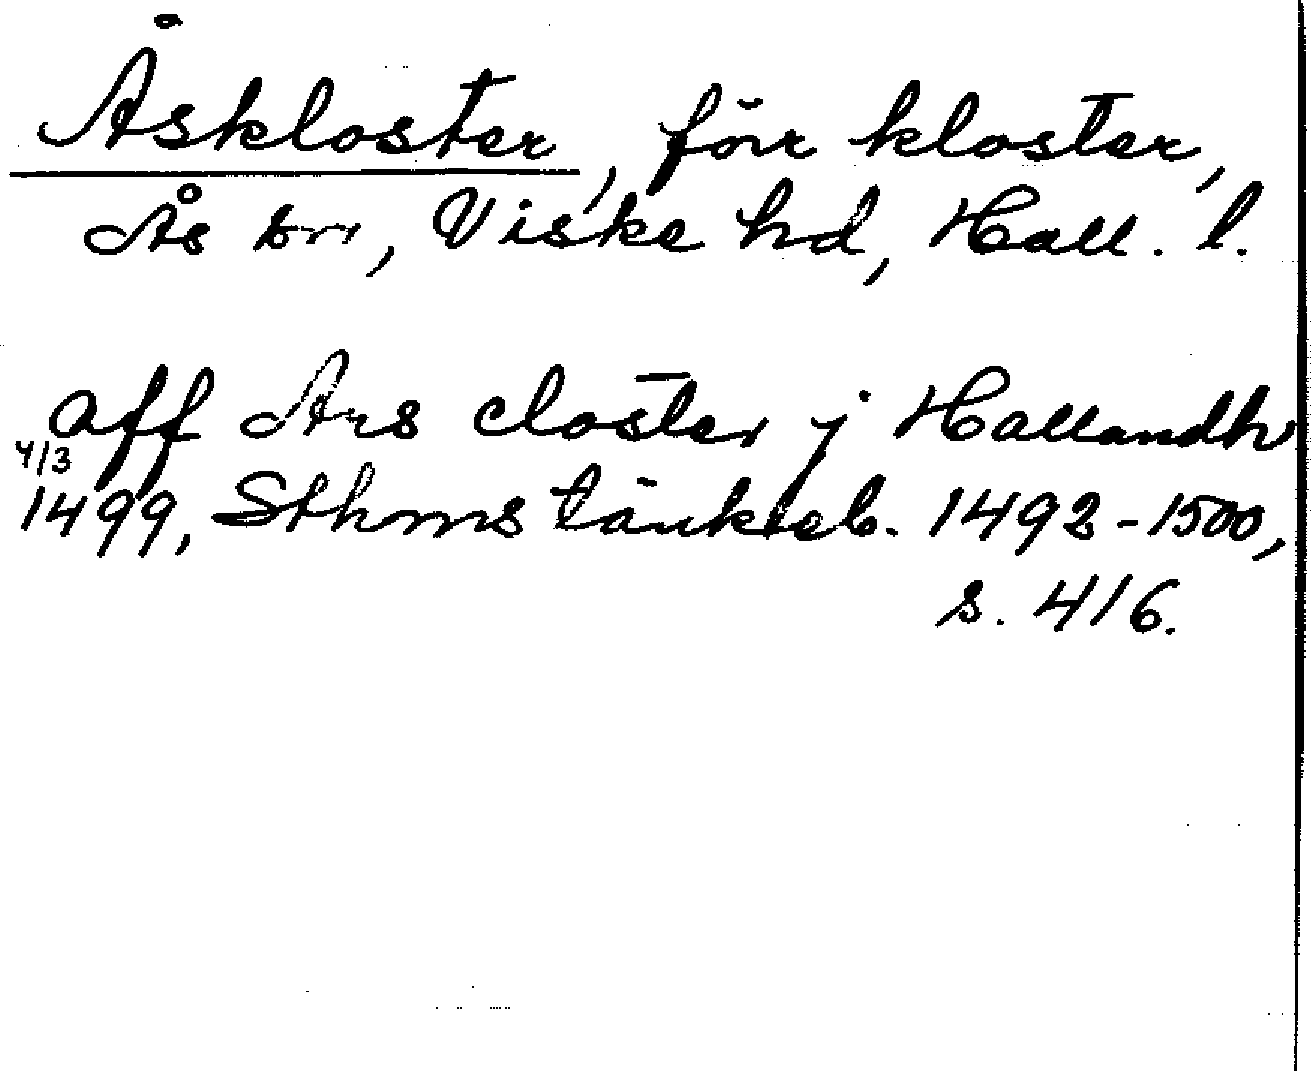 Åskloster, förr kloster,
Ås sn, Viske hd, Hall. l.
aff Ars closter j Hallandh
4/3
1499, Sthms tänkeb. 1492-1500,
s. 416.